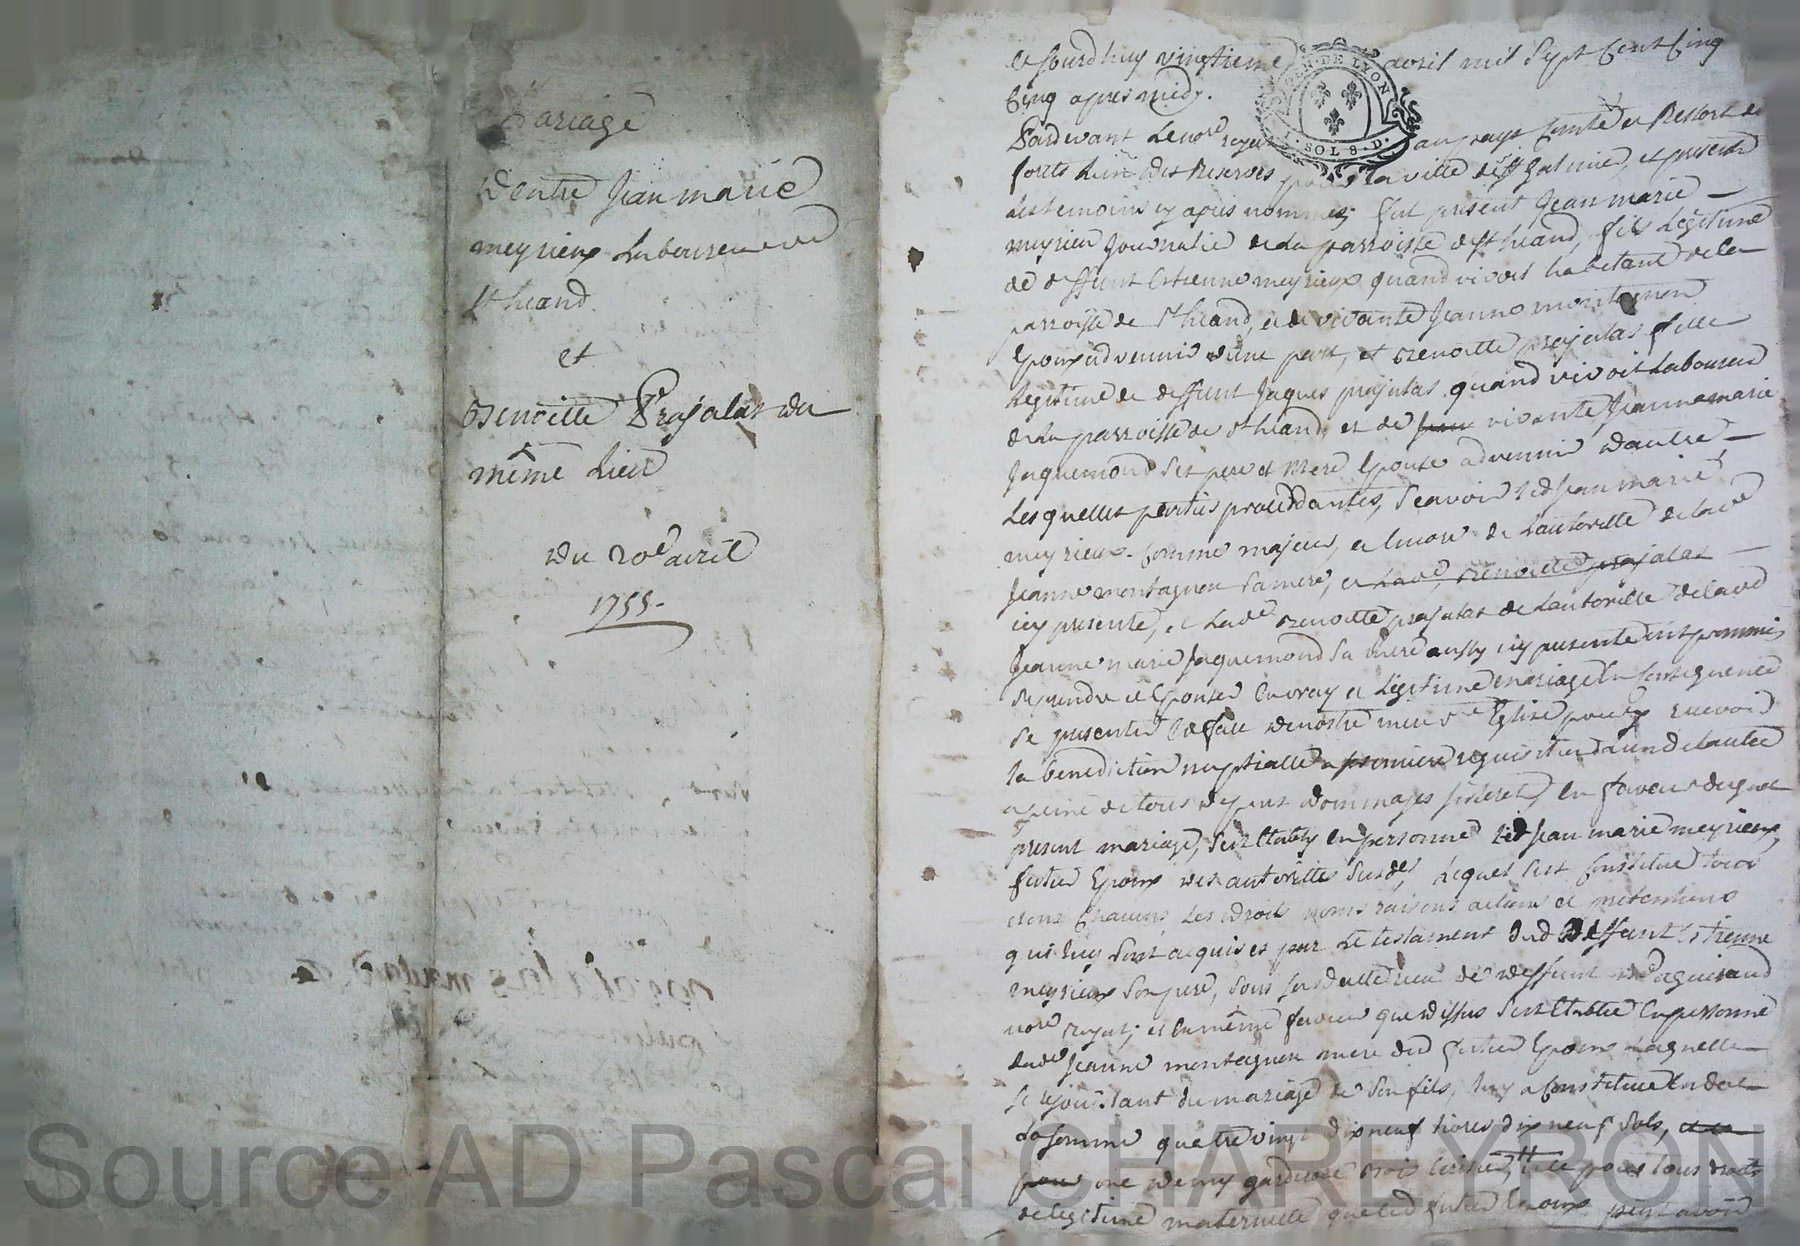 Mariage
D'entre Jean marie
meyrieux Laboureur de
St heand
et
Benoitte Prajalas du
même Lieu
du 20e avril
1755.
Ce jourdhuy vingtieme avril mil sept Cent Cinq
Cinq apres midy.
Pardevant Le nore royal au pays Comté et Ressort de
forets Lun des Reservés pour la ville de St Galmier, et presents
Les temoins cy apres nommés; fut present Jean marie
meyrieu Journalié de la parroisse de St heand, fils Legitime
de deffunt Estienne meyrieux quand vivoit habitant de la
parroisse de St heand, et de vivante Jeanne montagnon
Epoux advenir d'une part, et Benoitte prajalas fille
Legitime de deffunt Jaques prajalas quand vivoit Laboureur
de la parroisse de St heand, et de vivante Jeanne marie
Jaquemond ses pere et mere Epouse advenir d'autre,
Lesquelles parties procedantes, scavoir led Jean marie
meyrieux comme majeur, et encore de Lautoritte de lad
Jeanne montagnon sa mere, et lade Benoitte prajalas
icy presente, et lade Benoitte prajalas de Lautoritte de lade
Jeanne marie Jaquemond sa mere aussy icy presente ont promis
se prendre et Epouser En vray et Legitime mariage En Consequence
se presenter En face de nostre mere ste Eglise pour y recevoir
la benediction nuptialle a premiere requisition d'un de lautre
a peine de tous depens dommages Interets, En faveur duquel
present mariage, sest Etably En personne led Jean marie meyrieux
futur Epoux de Lautoritte susde, Lequel sest Constitué tous
et uns Chacuns Les droits noms raisons actions et pretentions
qui luy sont acquises par Le testament dud deffunt Etienne
meyrieux son pere, sous
nore royal; et En même faveur que dessus sest Etablie En personne
lade Jeanne montagnon mere dud futur Epoux Laquelle
se rejouissant du mariage de son fils, luy a Constitué En dot
la somme quatre vingt dix neuf livres dix neuf sols, et
pour une
de legitime maternelle que led futur Epoux peut avoir
A GEN. DE LYON
1. SOL 8. D.
Source AD Pascal CHAREYRON